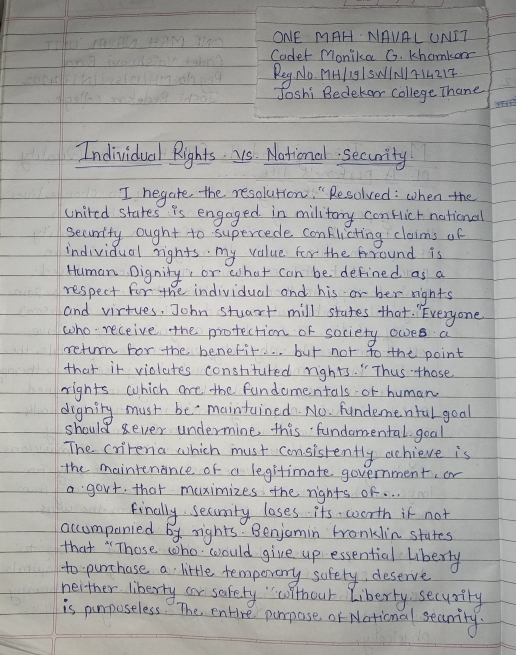 ONE MAH NAVAL UNIT
Cadet Monika G. Khamkar
Reg.No. MH/19/SW/N/714217
Joshi Bedekar College Thane
Individual Rights vs. National Security.
I negate the resolution, "Resolved: when the
united states is engaged in military conflict national
security ought to supercede conflicting claims of
individual rights. my value for the around is
Human Dignity, or what can be defined as a
respect for the individual and his or ber rights
and virtues. John stuart mill states that. "Everyone
who receive the protection of society owes a
return for the benefit... but not to the point
that it violates constituted rights." Thus those
rights which are the fundamentals of human
dignity must be maintained No. fundemental goal
should sever undermine this fundamental goal
The criteria which must consistently achieve is
the maintenance of a legitimate government, or
a govt. that maximizes the rights of...
finally security loses its worth if not
accumpanied by rights. Benjamin franklin states
that "Those who would give up essential Liberty
to purchase a little temporary safety, deserve
neither liberty or safety "without Liberty security
is purposeless The entire purpose of National security.